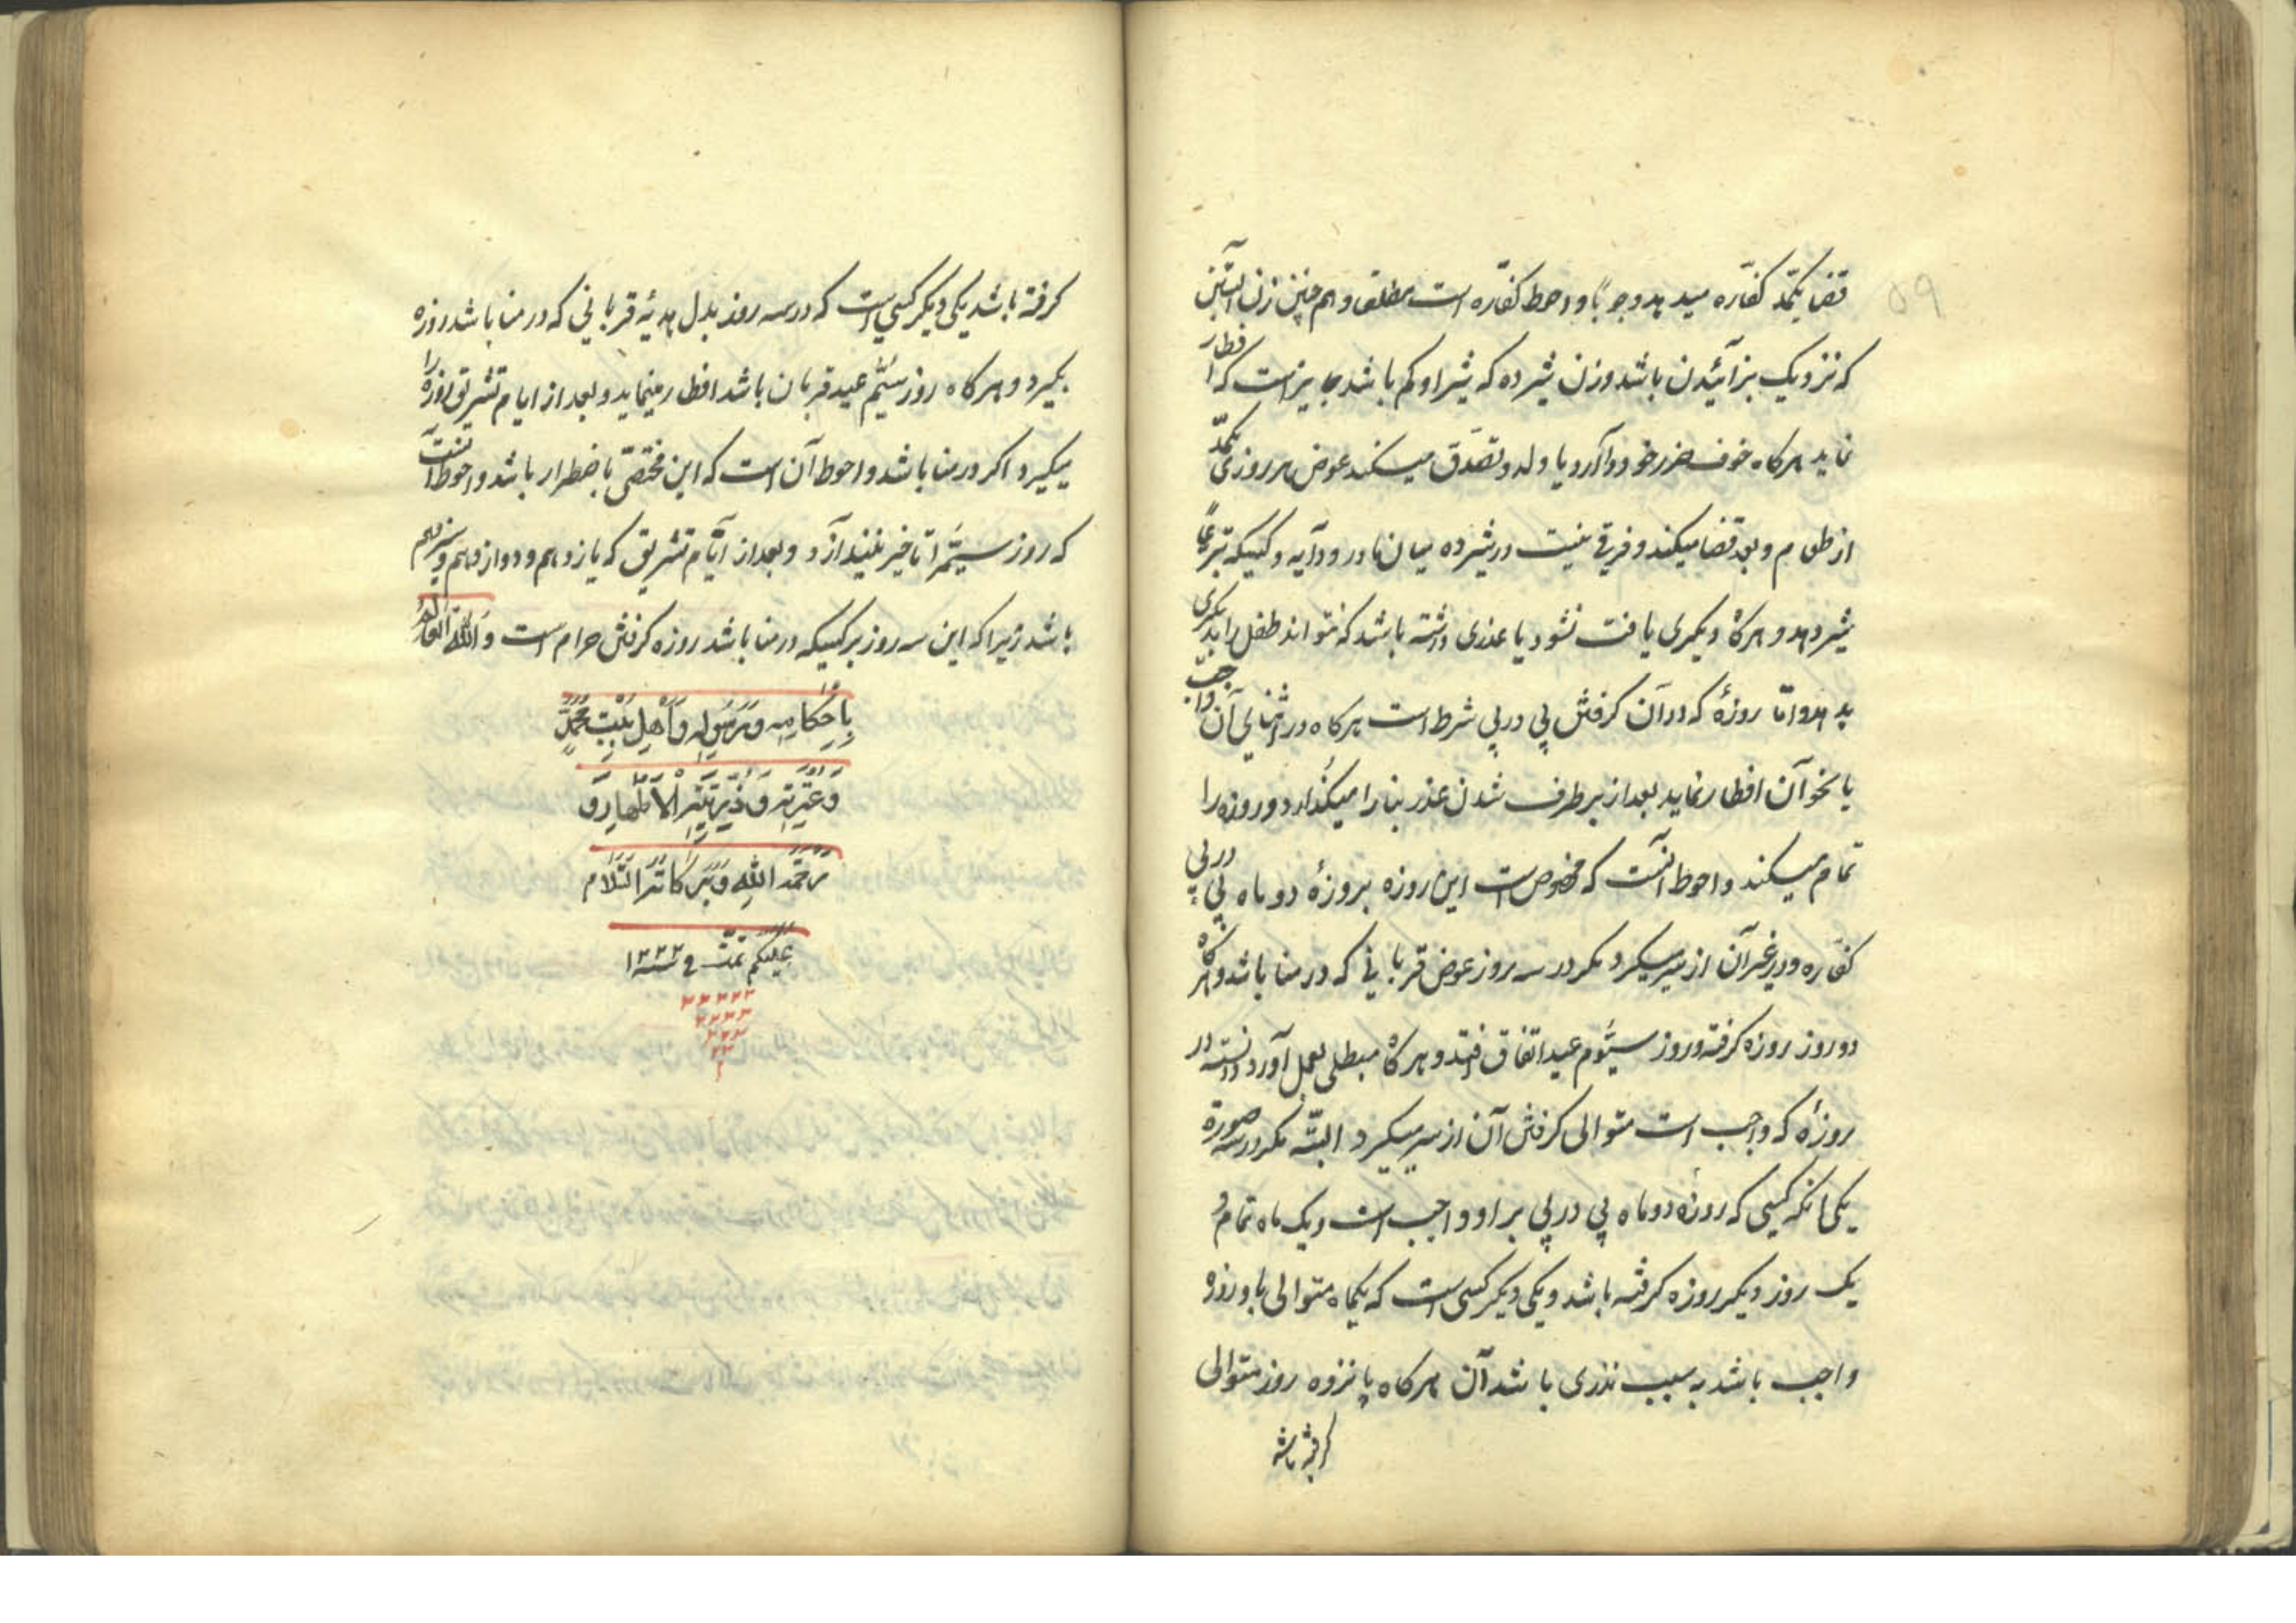 ۵۹
قضا یکمد کفّاره میدهد وجوباً و احوط کفّاره است مطلقا و هم چنین زن آبستن
که نزدیک بزائیدن باشد و زن شیرده که شیر او کم باشد جایز است که افطار
نماید هرکاه خوف ضرر خود دارد یا ولد و تصدّق میکند عوض هر روزی یکمدّ
از طعام و بعد قضا میکند و فرقی نیست در شیرده میان مادر و دایه و کسیکه تبرعاً
شیر دهد و هرکاه دیکری یافت نشود یا عذری داشته باشد که نتواند طفل را بدیکری
بدهد و امّا روزهٔ که در آن کرفتش پی در پی شرط است هرکاه در اثنای آن واجب
یا نحو آن افطار نماید بعد از برطرف شدن عذر بنا را میکذارد و روزه را
تمام میکند و احوط آنست که مخصوص است این روزه بروزهٔ دو ماه پی در پی
کفّاره و در غیر آن از سر میکیرد مکر در سه روز عوض قربانی که در منا باشد و هرکاه
دو روز روزه کرفته و روز سیّوم عید اتفاق افتد و هرکاه مبطلی بعمل آورد دانسته در
روزهٔ که واجب است متوالی کرفتن آن از سر میکیرد البتّه مکر در سه صورة
یکی انکه کسی که روزهٔ دو ماه پی در پی بر او واجب است و یک ماه تمام و
یک روز دیکر روزه کرفته باشد و یکی دیکر کسی است که یکماه متوالی باو روزه
واجب باشد به سبب نذری باشد آن هرکاه پانزده روز متوالی
کرفته باشد
کرفته باشد یکی دیکر کسی است که در سه روز بدل هدیهٔ قربانی که در منا باشد روزه
بکیرد و هرکاه روز سیّم عید قربان باشد افطار مینماید و بعد از ایام تشریق روزه را
میکیرد اکر در منا باشد و احوط آن است که این مختصّ باضطرار باشد و احوط آنست
که روز سیّم را تاخیر نیندازد و بعد از ایّام تشریق که یازدهم و دوازدهم و سیزدهم
باشد زیرا که این سه روز بر کسیکه در منا باشد روزه کرفتن حرام است وَاللّٰه العالم
بِاَحْکامِهِ وَرَسُولِهِ وَاَهْلِ بَیْتِ مُحَمَّدٍ
وَعِتْرَتِهِ وَذُرِّیَّتِهِ الْاَطْهارِ وَ
رَحْمَةُ اللهِ وَبَرَکاتُهُ السَّلام
عَلَیْکُم تمّت فی سنه ۱۲۲۲